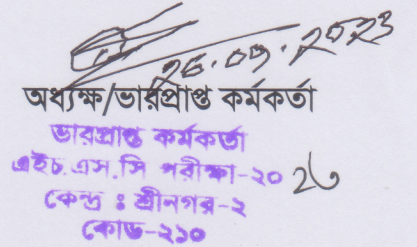 26.09.2023
অধ্যক্ষ/ভারপ্রাপ্ত কর্মকর্তা
ভারপ্রাপ্ত কর্মকর্তা
এইচ.এস.সি পরীক্ষা-২০২৩
কেন্দ্র ঃ শ্রীনগর-২
কোড-২১০